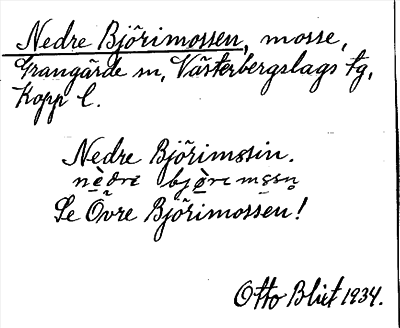 Nedre Björimossen, mosse,
Grangärde sn, Västerbergslags tg,
Kopp l.
Nedre Björimssin.
Se Övre Björimossen!
Otto Blixt 1934.